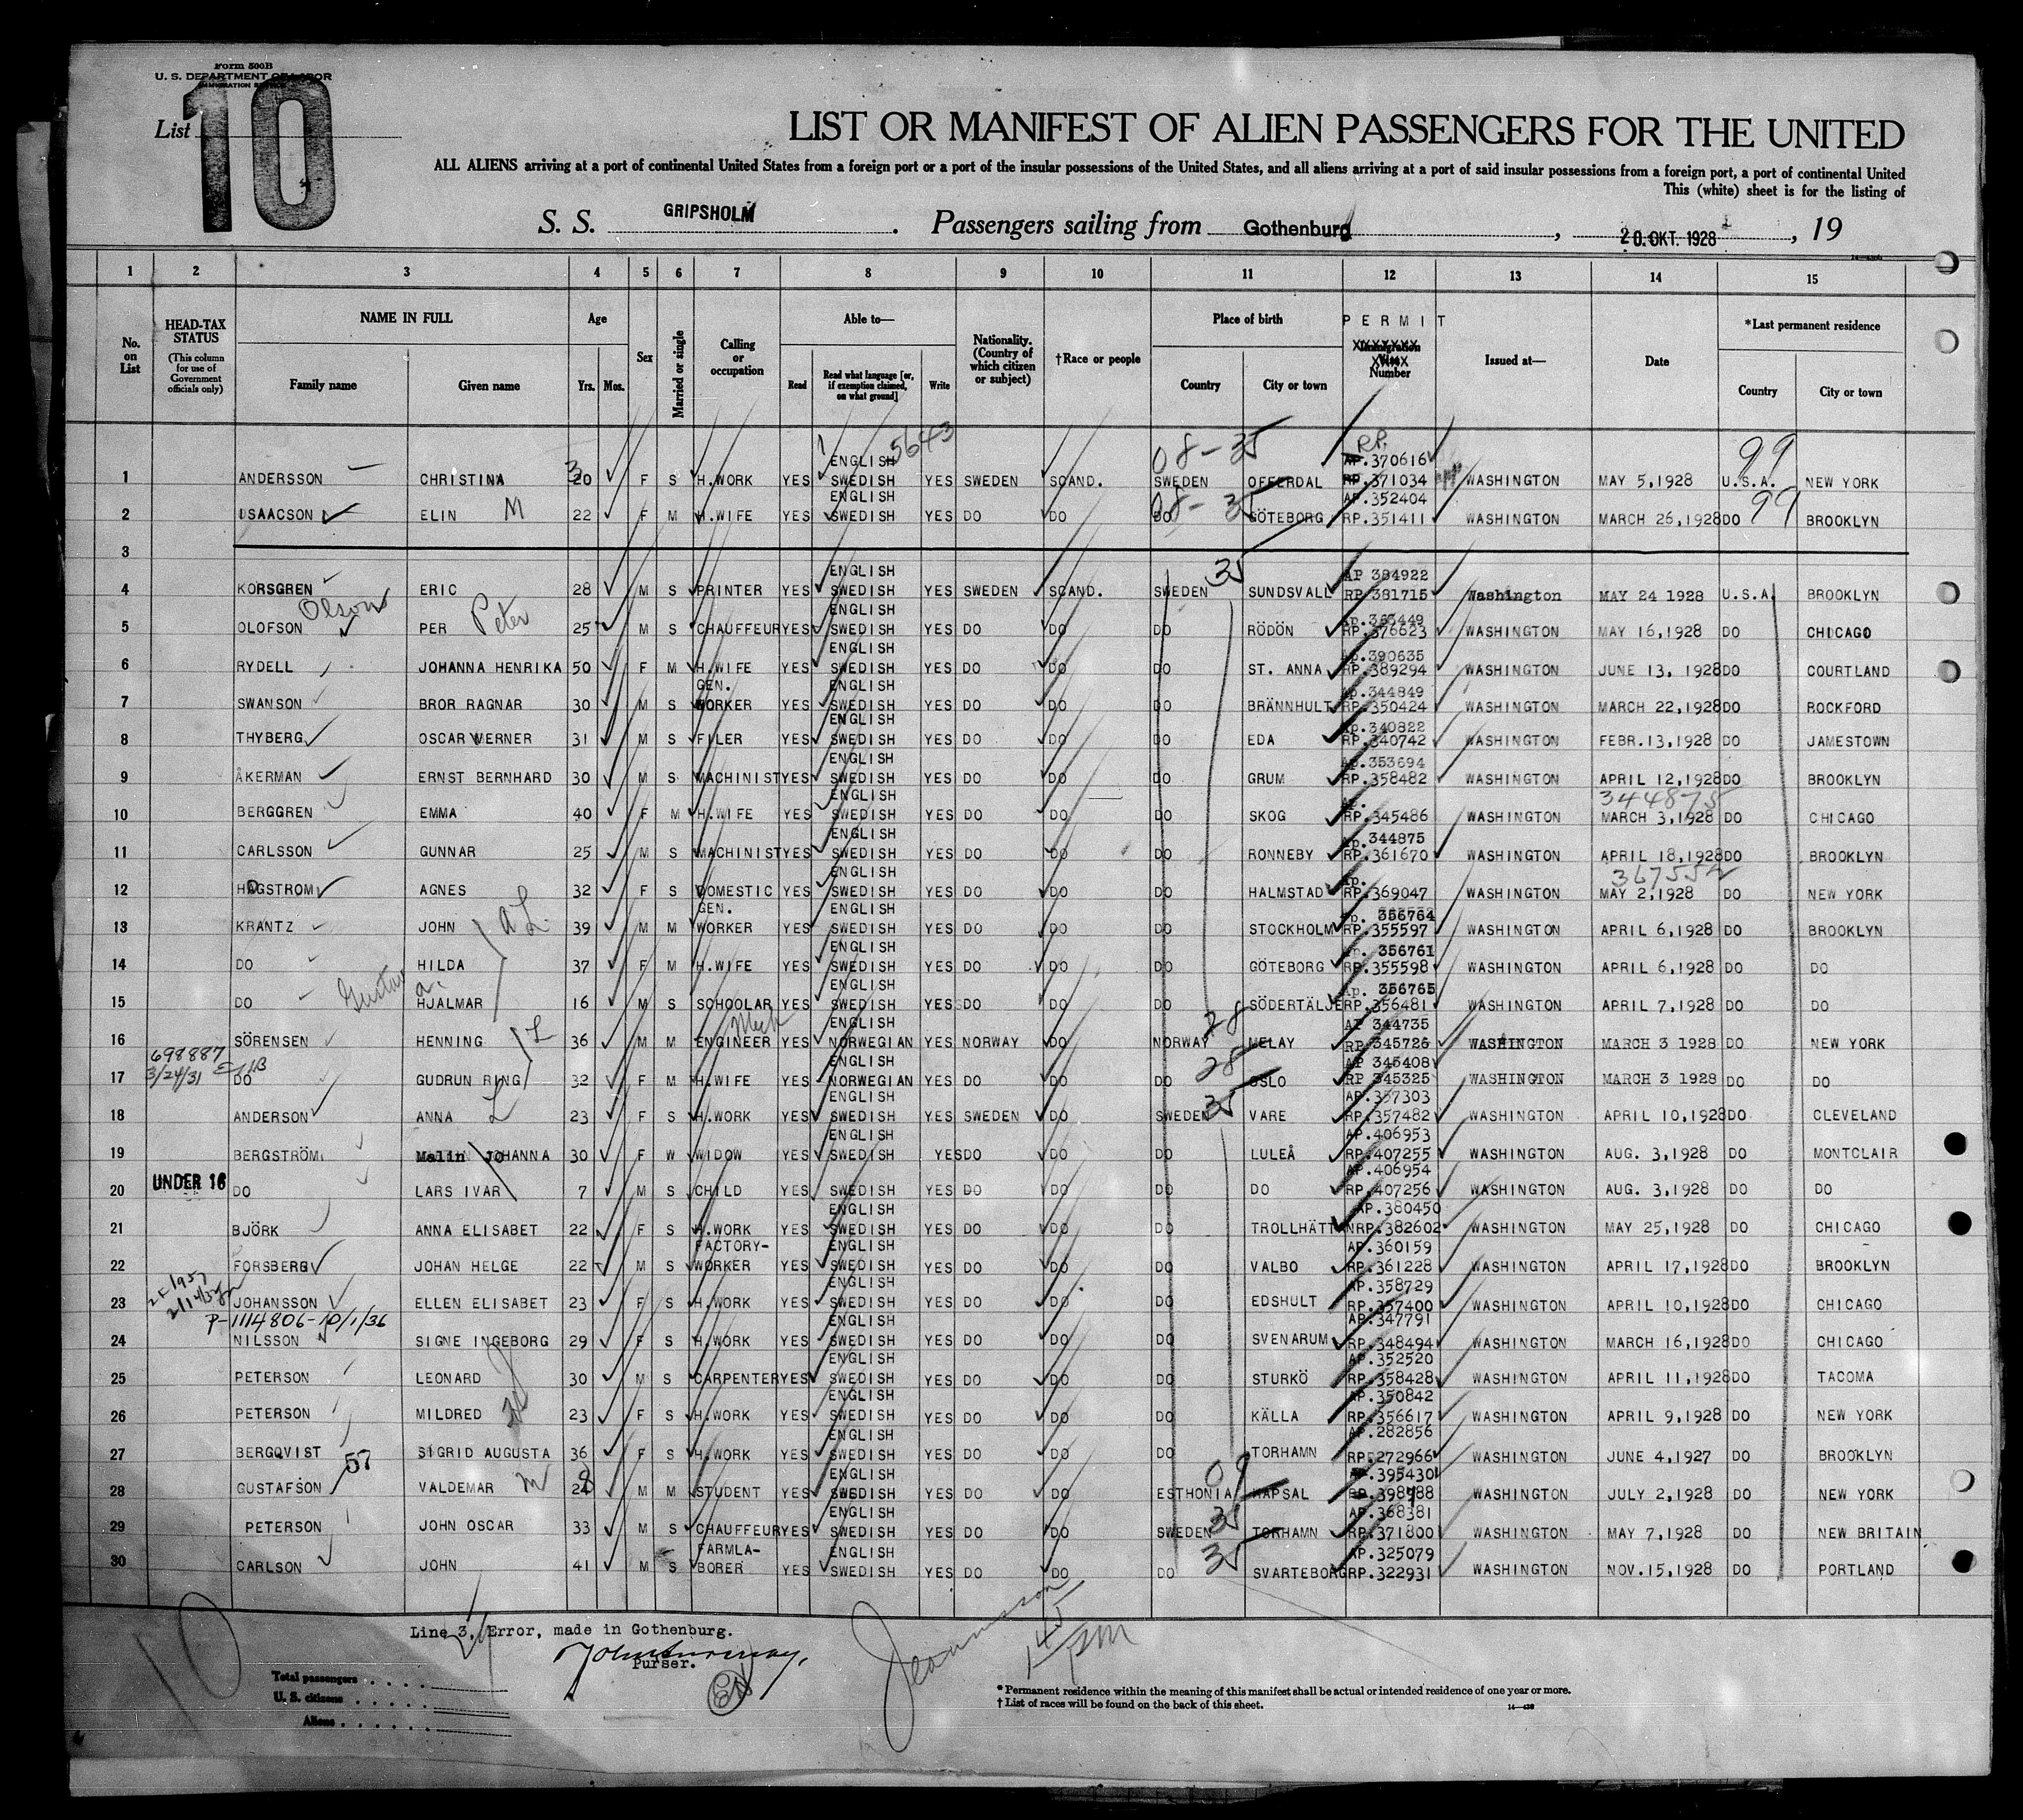 Form 500B
U. S. DEPARTMENT OF LABOR
IMMIGRATION SERVICE
List 10
LIST OR MANIFEST OF ALIEN PASSENGERS FOR THE UNITED
ALL ALIENS arriving at a port of continental United States from a foreign port or a port of the insular possessions of the United States, and all aliens arriving at a port of said insular possessions from a foreign port, a port of continental United
This (white) sheet is for the listing of
S. S. GRIPSHOLM . Passengers sailing from Gothenburg , 20.OKT.1928 , 19
1 2 3 4 5 6 7 8 9 10 11 12 13 14 15
No. on List
HEAD-TAX STATUS (This column for use of Government officials only)
NAME IN FULL Family name Given name
Age Yrs. Mos.
Sex
Married or single
Calling or occupation
Able to— Read Read what language [or, if exemption claimed, on what ground] Write
Nationality. (Country of which citizen or subject)
†Race or people
Place of birth Country City or town
PERMIT Immigration Visa Number
Issued at—
Date
*Last permanent residence Country City or town
5643 08-35 RP. 99
1 ANDERSSON CHRISTINA 30 F S H.WORK YES ENGLISH SWEDISH YES SWEDEN SCAND. SWEDEN OFFERDAL AP.370616 RP.371034 WASHINGTON MAY 5,1928 U.S.A. NEW YORK
2 ISAACSON ELIN M 22 F M H.WIFE YES ENGLISH SWEDISH YES DO DO DO 08-35 GÖTEBORG AP.352404 RP.351411 WASHINGTON MARCH 26,1928 DO 99 BROOKLYN
3
35
4 KORSGREN ERIC 28 M S PRINTER YES ENGLISH SWEDISH YES SWEDEN SCAND. SWEDEN SUNDSVALL AP 384922 RP.381715 Washington MAY 24 1928 U.S.A. BROOKLYN
5 OLOFSON Olson PER Peter 25 M S CHAUFFEUR YES ENGLISH SWEDISH YES DO DO DO RÖDÖN Ap.363449 RP.376623 WASHINGTON MAY 16,1928 DO CHICAGO
6 RYDELL JOHANNA HENRIKA 50 F M H.WIFE YES ENGLISH SWEDISH YES DO DO DO ST. ANNA Ap.390635 RP.389294 WASHINGTON JUNE 13, 1928 DO COURTLAND
7 SWANSON BROR RAGNAR 30 M S GEN. WORKER YES ENGLISH SWEDISH YES DO DO DO BRÄNNHULT Ap.344849 RP.350424 WASHINGTON MARCH 22,1928 DO ROCKFORD
8 THYBERG OSCAR WERNER 31 M S FILER YES ENGLISH SWEDISH YES DO DO DO EDA Ap.340822 RP.340742 WASHINGTON FEBR.13,1928 DO JAMESTOWN
9 ÅKERMAN ERNST BERNHARD 30 M S MACHINIST YES ENGLISH SWEDISH YES DO DO DO GRUM Ap.353694 RP.358482 WASHINGTON APRIL 12,1928 DO BROOKLYN
10 BERGGREN EMMA 40 F M H.WIFE YES ENGLISH SWEDISH YES DO DO DO SKOG Ap. RP.345486 WASHINGTON 344875 MARCH 3,1928 DO CHICAGO
11 CARLSSON GUNNAR 25 M S MACHINIST YES ENGLISH SWEDISH YES DO DO DO RONNEBY Ap.344875 RP.361670 WASHINGTON APRIL 18,1928 DO BROOKLYN
12 HAGSTROM AGNES 32 F S DOMESTIC YES ENGLISH SWEDISH YES DO DO DO HALMSTAD Ap. RP.369047 WASHINGTON 367552 MAY 2,1928 DO NEW YORK
13 KRANTZ JOHN a L. 39 M M GEN. WORKER YES ENGLISH SWEDISH YES DO DO DO STOCKHOLM Ap. 356764 RP.355597 WASHINGTON APRIL 6,1928 DO BROOKLYN
14 DO HILDA 37 F M H.WIFE YES ENGLISH SWEDISH YES DO DO DO GÖTEBORG Ap. 356761 RP.355598 WASHINGTON APRIL 6,1928 DO DO
15 DO Gustav a. HJALMAR 16 M S SCHOOLAR YES ENGLISH SWEDISH YES DO DO DO SÖDERTÄLJE Ap. 356765 RP.356481 WASHINGTON APRIL 7,1928 DO DO
16 SÖRENSEN HENNING L 36 M M Mech ENGINEER YES ENGLISH NORWEGIAN YES NORWAY DO NORWAY 28 MELAY AP 344735 RP 345726 WASHINGTON MARCH 3 1928 DO NEW YORK
17 698887 3/24/31 DO GUDRUN RING 32 F M H.WIFE YES ENGLISH NORWEGIAN YES DO DO DO 28 OSLO AP 345408 RP 345325 WASHINGTON MARCH 3 1928 DO DO
18 ANDERSON ANNA L 23 F S H.WORK YES ENGLISH SWEDISH YES SWEDEN DO SWEDEN 35 VARE AP.357303 RP.357482 WASHINGTON APRIL 10,1928 DO CLEVELAND
19 BERGSTRÖM Malin JOHANNA 30 F W WIDOW YES ENGLISH SWEDISH YES DO DO DO LULEÅ AP.406953 RP.407255 WASHINGTON AUG. 3,1928 DO MONTCLAIR
20 UNDER 16 DO LARS IVAR 7 M S CHILD YES SWEDISH YES DO DO DO DO AP.406954 RP.407256 WASHINGTON AUG. 3,1928 DO DO
21 BJÖRK ANNA ELISABET 22 F S H.WORK YES ENGLISH SWEDISH YES DO DO DO TROLLHÄTTAN AP.380450 RP.382602 WASHINGTON MAY 25,1928 DO CHICAGO
22 FORSBERG JOHAN HELGE 22 M S FACTORY-WORKER YES ENGLISH SWEDISH YES DO DO DO VALBO AP.360159 RP.361228 WASHINGTON APRIL 17,1928 DO BROOKLYN
23 JOHANSSON ELLEN ELISABET 23 F S H.WORK YES ENGLISH SWEDISH YES DO DO DO EDSHULT AP.358729 RP.357400 WASHINGTON APRIL 10,1928 DO CHICAGO
P-1114806-10/1/36
24 NILSSON SIGNE INGEBORG 29 F S H.WORK YES ENGLISH SWEDISH YES DO DO DO SVENARUM AP.347791 RP.348494 WASHINGTON MARCH 16,1928 DO CHICAGO
25 PETERSON LEONARD 30 M S CARPENTER YES ENGLISH SWEDISH YES DO DO DO STURKÖ AP.352520 RP.358428 WASHINGTON APRIL 11,1928 DO TACOMA
26 PETERSON MILDRED 23 F S H.WORK YES ENGLISH SWEDISH YES DO DO DO KÄLLA AP.350842 RP.356617 WASHINGTON APRIL 9,1928 DO NEW YORK
27 BERGQVIST 57 SIGRID AUGUSTA 36 F S H.WORK YES ENGLISH SWEDISH YES DO DO DO TORHAMN AP.282856 RP.272966 WASHINGTON JUNE 4,1927 DO BROOKLYN
28 GUSTAFSON VALDEMAR m 28 M M STUDENT YES ENGLISH SWEDISH YES DO DO ESTHONIA 09 HAPSAL AP.395430 RP.398988 WASHINGTON JULY 2,1928 DO NEW YORK
29 PETERSON JOHN OSCAR 33 M S CHAUFFEUR YES ENGLISH SWEDISH YES DO DO SWEDEN 35 TORHAMN AP.368381 RP.371800 WASHINGTON MAY 7,1928 DO NEW BRITAIN
30 CARLSON JOHN 41 M S FARMLA-BORER YES ENGLISH SWEDISH YES DO DO DO 35 SVARTEBORG AP.325079 RP.322931 WASHINGTON NOV.15,1928 DO PORTLAND
10
Line 3, Error, made in Gothenburg.
Purser.
Total passengers
U. S. citizens
Aliens
* Permanent residence within the meaning of this manifest shall be actual or intended residence of one year or more.
† List of races will be found on the back of this sheet.